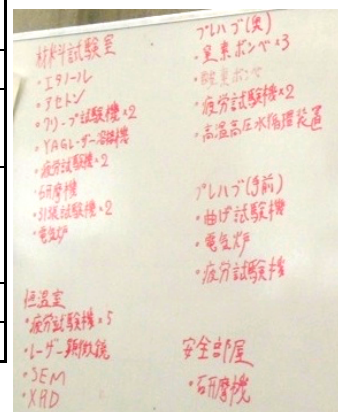 材料試験室
・エタノール
・アセトン
・クリープ試験機×2
・YAGレーザー溶接機
・疲労試験機×2
・研磨機
・引張試験機×2
・電気炉
恒温室
・疲労試験機×5
・レーザー顕微鏡
・SEM
・XRD
プレハブ(奥)
・窒素ボンベ×3
・酸素ボンベ
・疲労試験機×2
・高温高圧水循環装置
プレハブ(手前)
・曲げ試験機
・電気炉
・疲労試験機
安全部屋
・研磨機